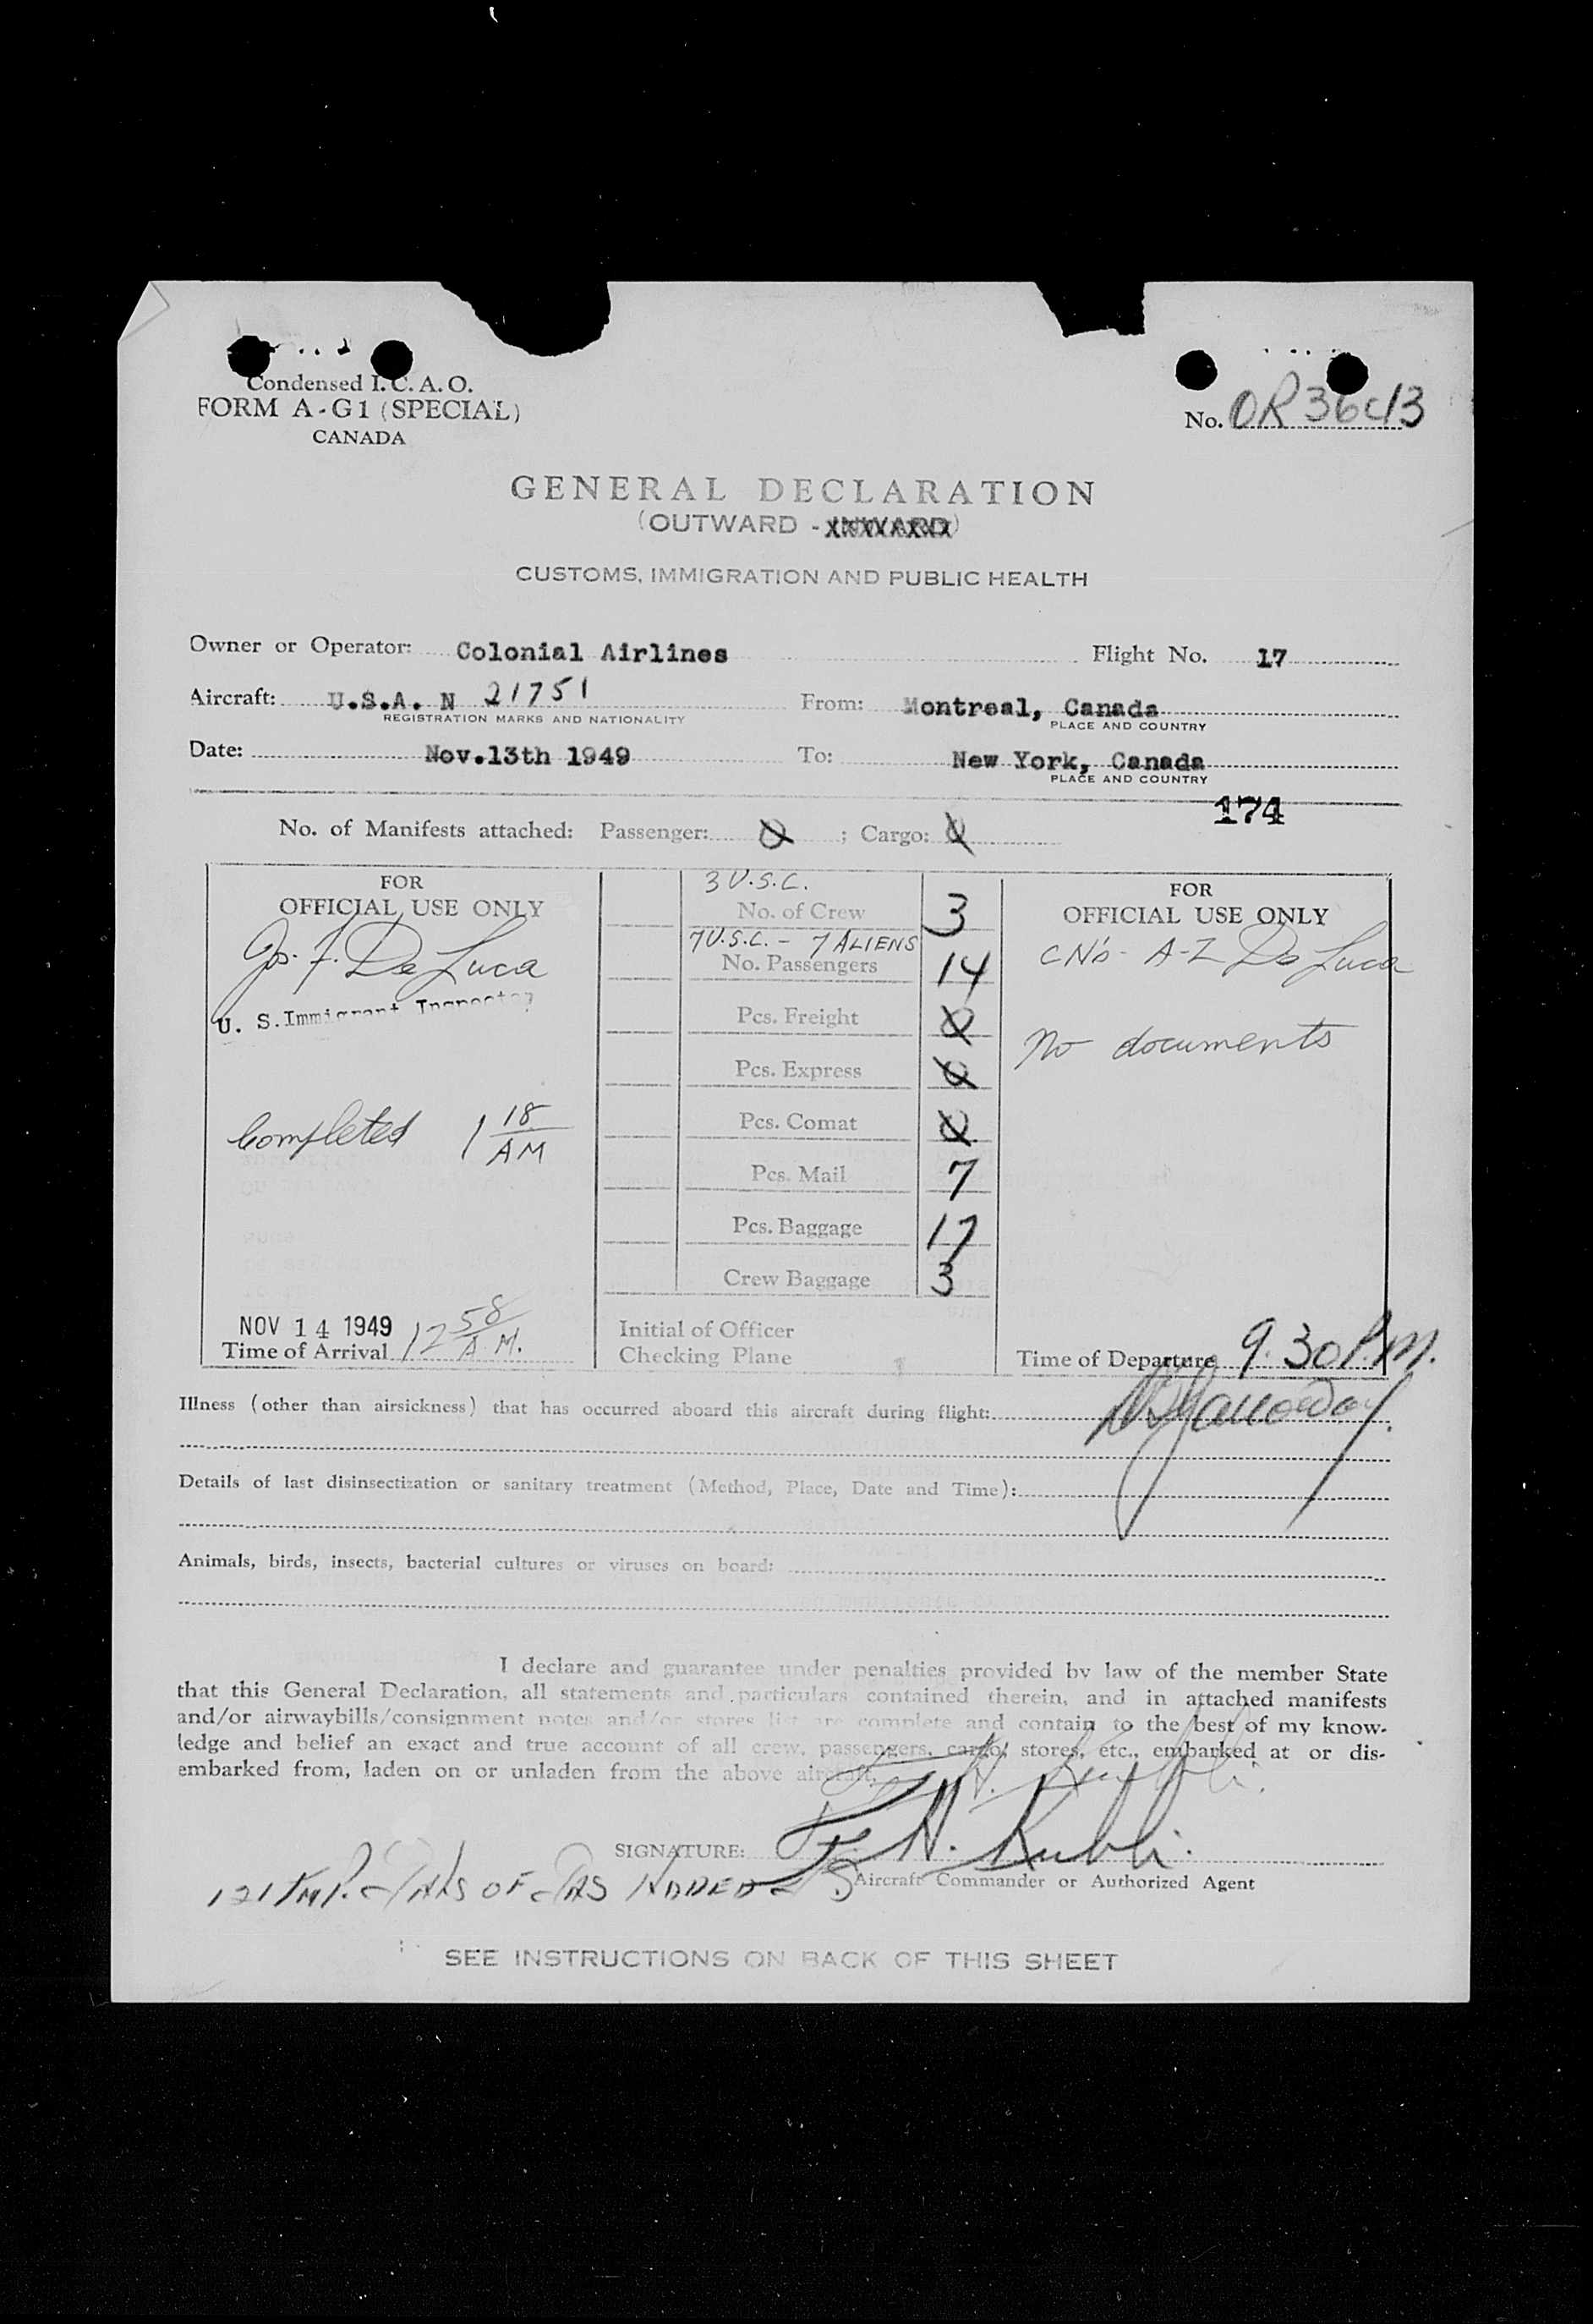 Condensed I.C.A.O.
FORM A-G1 (SPECIAL)
CANADA
No. OR
GENERAL DECLARATION
(OUTWARD - INWARD)
CUSTOMS, IMMIGRATION AND PUBLIC HEALTH
Owner or Operator: Colonial Airlines Flight No. 17
Aircraft: U.S.A. N 21751 From: Montreal, Canada
REGISTRATION MARKS AND NATIONALITY PLACE AND COUNTRY
Date: Nov.13th 1949 To: New York, Canada
PLACE AND COUNTRY
174
No. of Manifests attached: Passenger: 0 ; Cargo: 0
FOR
OFFICIAL USE ONLY
Jos. F. De Luca
U. S. Immigrant Inspector
Completed 1 18 AM
NOV 14 1949
Time of Arrival 12 58 A.M.
3 U.S.C.
No. of Crew 3
7 U.S.C. - 7 ALIENS
No. Passengers 14
Pcs. Freight 0
Pcs. Express 0
Pcs. Comat 0
Pcs. Mail 7
Pcs. Baggage 17
Crew Baggage 3
Initial of Officer
Checking Plane
FOR
OFFICIAL USE ONLY
CN's - A-Z De Luca
No documents
Time of Departure 9.30 P.M.
Illness (other than airsickness) that has occurred aboard this aircraft during flight:
Details of last disinsectization or sanitary treatment (Method, Place, Date and Time):
Animals, birds, insects, bacterial cultures or viruses on board:
I declare and guarantee under penalties provided by law of the member State
that this General Declaration, all statements and particulars contained therein, and in attached manifests
and/or airwaybills/consignment notes and/or stores list are complete and contain to the best of my know-
ledge and belief an exact and true account of all crew, passengers, cargo, stores, etc., embarked at or dis-
embarked from, laden on or unladen from the above aircraft.
SIGNATURE: H. Kubli.
Aircraft Commander or Authorized Agent
OF ADDED
SEE INSTRUCTIONS ON BACK OF THIS SHEET